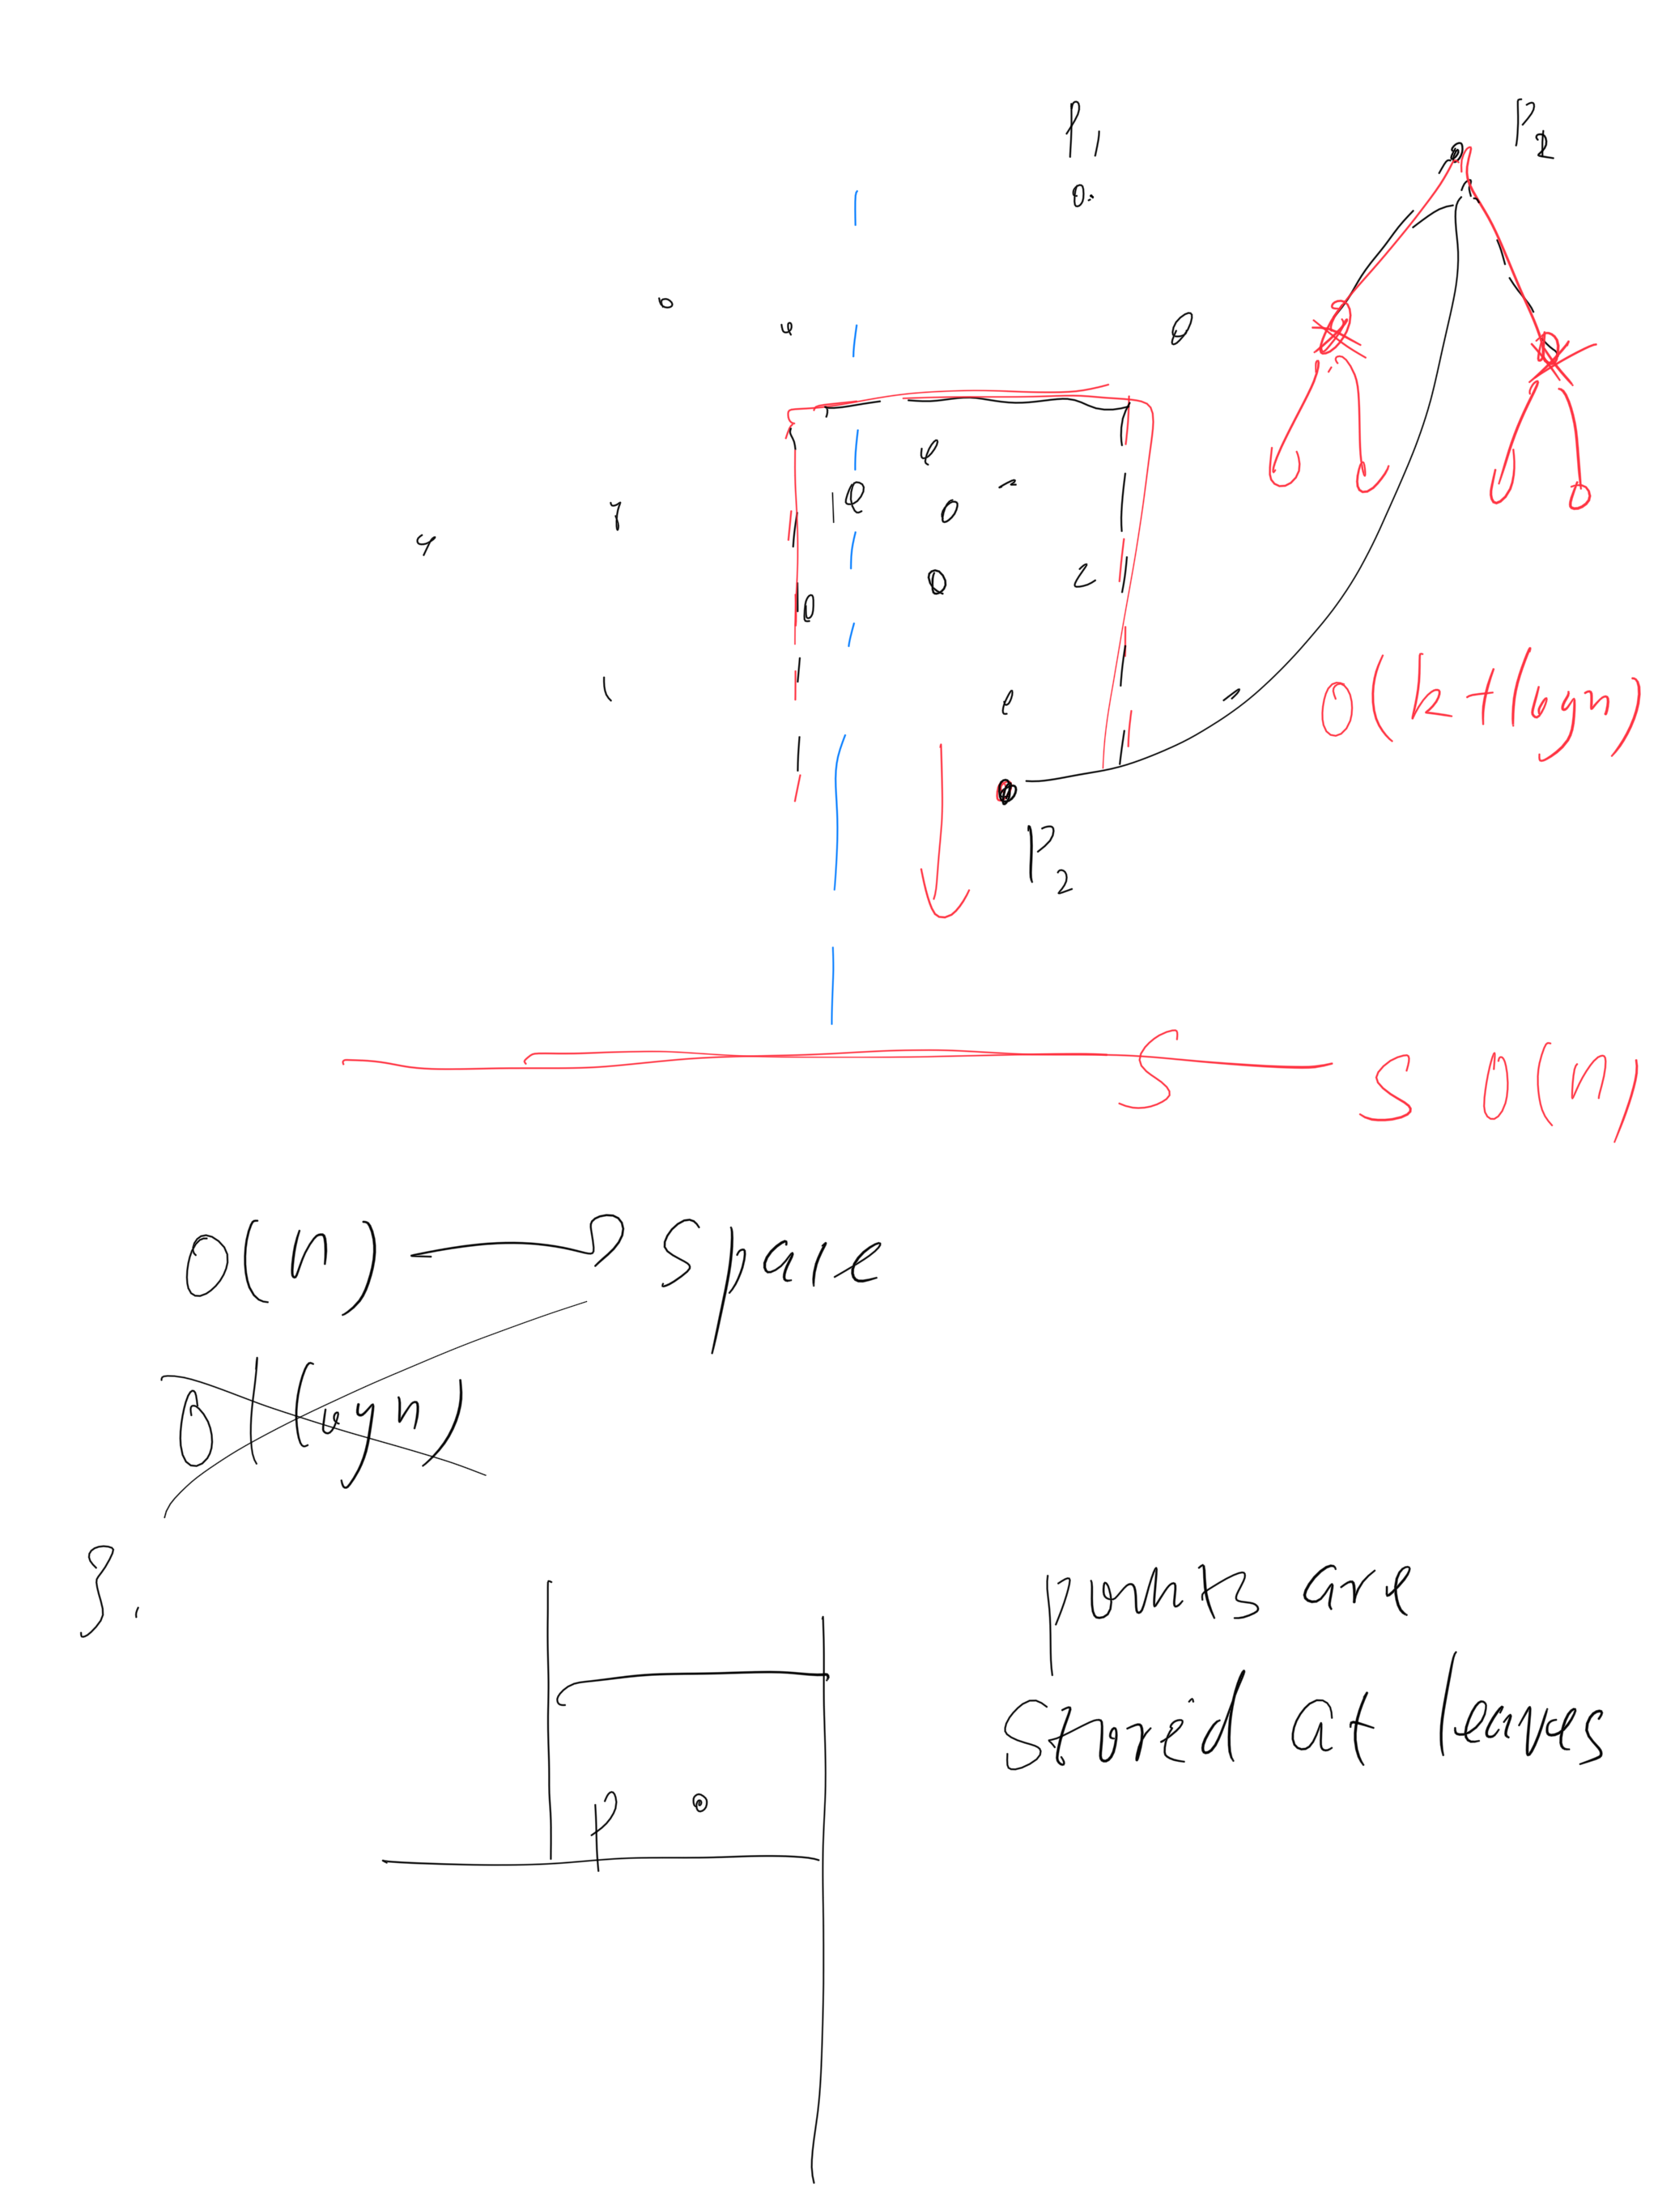 P1
P2
O(k+logn)
P2
S
S O(n)
O(n) space
O(logn)
points are
stored at leaves
P